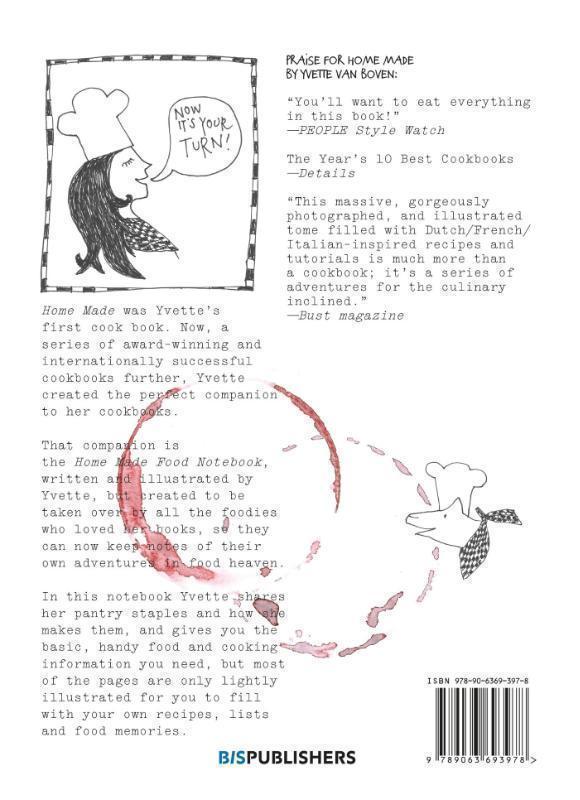 NOW
IT'S YOUR
TURN!
Home Made was Yvette's
first cook book. Now, a
series of award-winning and
internationally successful
cookbooks further, Yvette
created the perfect companion
to her cookbooks.
That companion is
the Home Made Food Notebook,
written and illustrated by
Yvette, but created to be
taken over by all the foodies
who loved her books, so they
can now keep notes of their
own adventures in food heaven.
In this notebook Yvette shares
her pantry staples and how she
makes them, and gives you the
basic, handy food and cooking
information you need, but most
of the pages are only lightly
illustrated for you to fill
with your own recipes, lists
and food memories.
PRAISE FOR HOME MADE
BY YVETTE VAN BOVEN:
“You'll want to eat everything
in this book!”
—PEOPLE Style Watch
The Year's 10 Best Cookbooks
—Details
“This massive, gorgeously
photographed, and illustrated
tome filled with Dutch/French/
Italian-inspired recipes and
tutorials is much more than
a cookbook; it's a series of
adventures for the culinary
inclined.”
—Bust magazine
ISBN 978-90-6369-397-8
9 789063 693978 >
BISPUBLISHERS